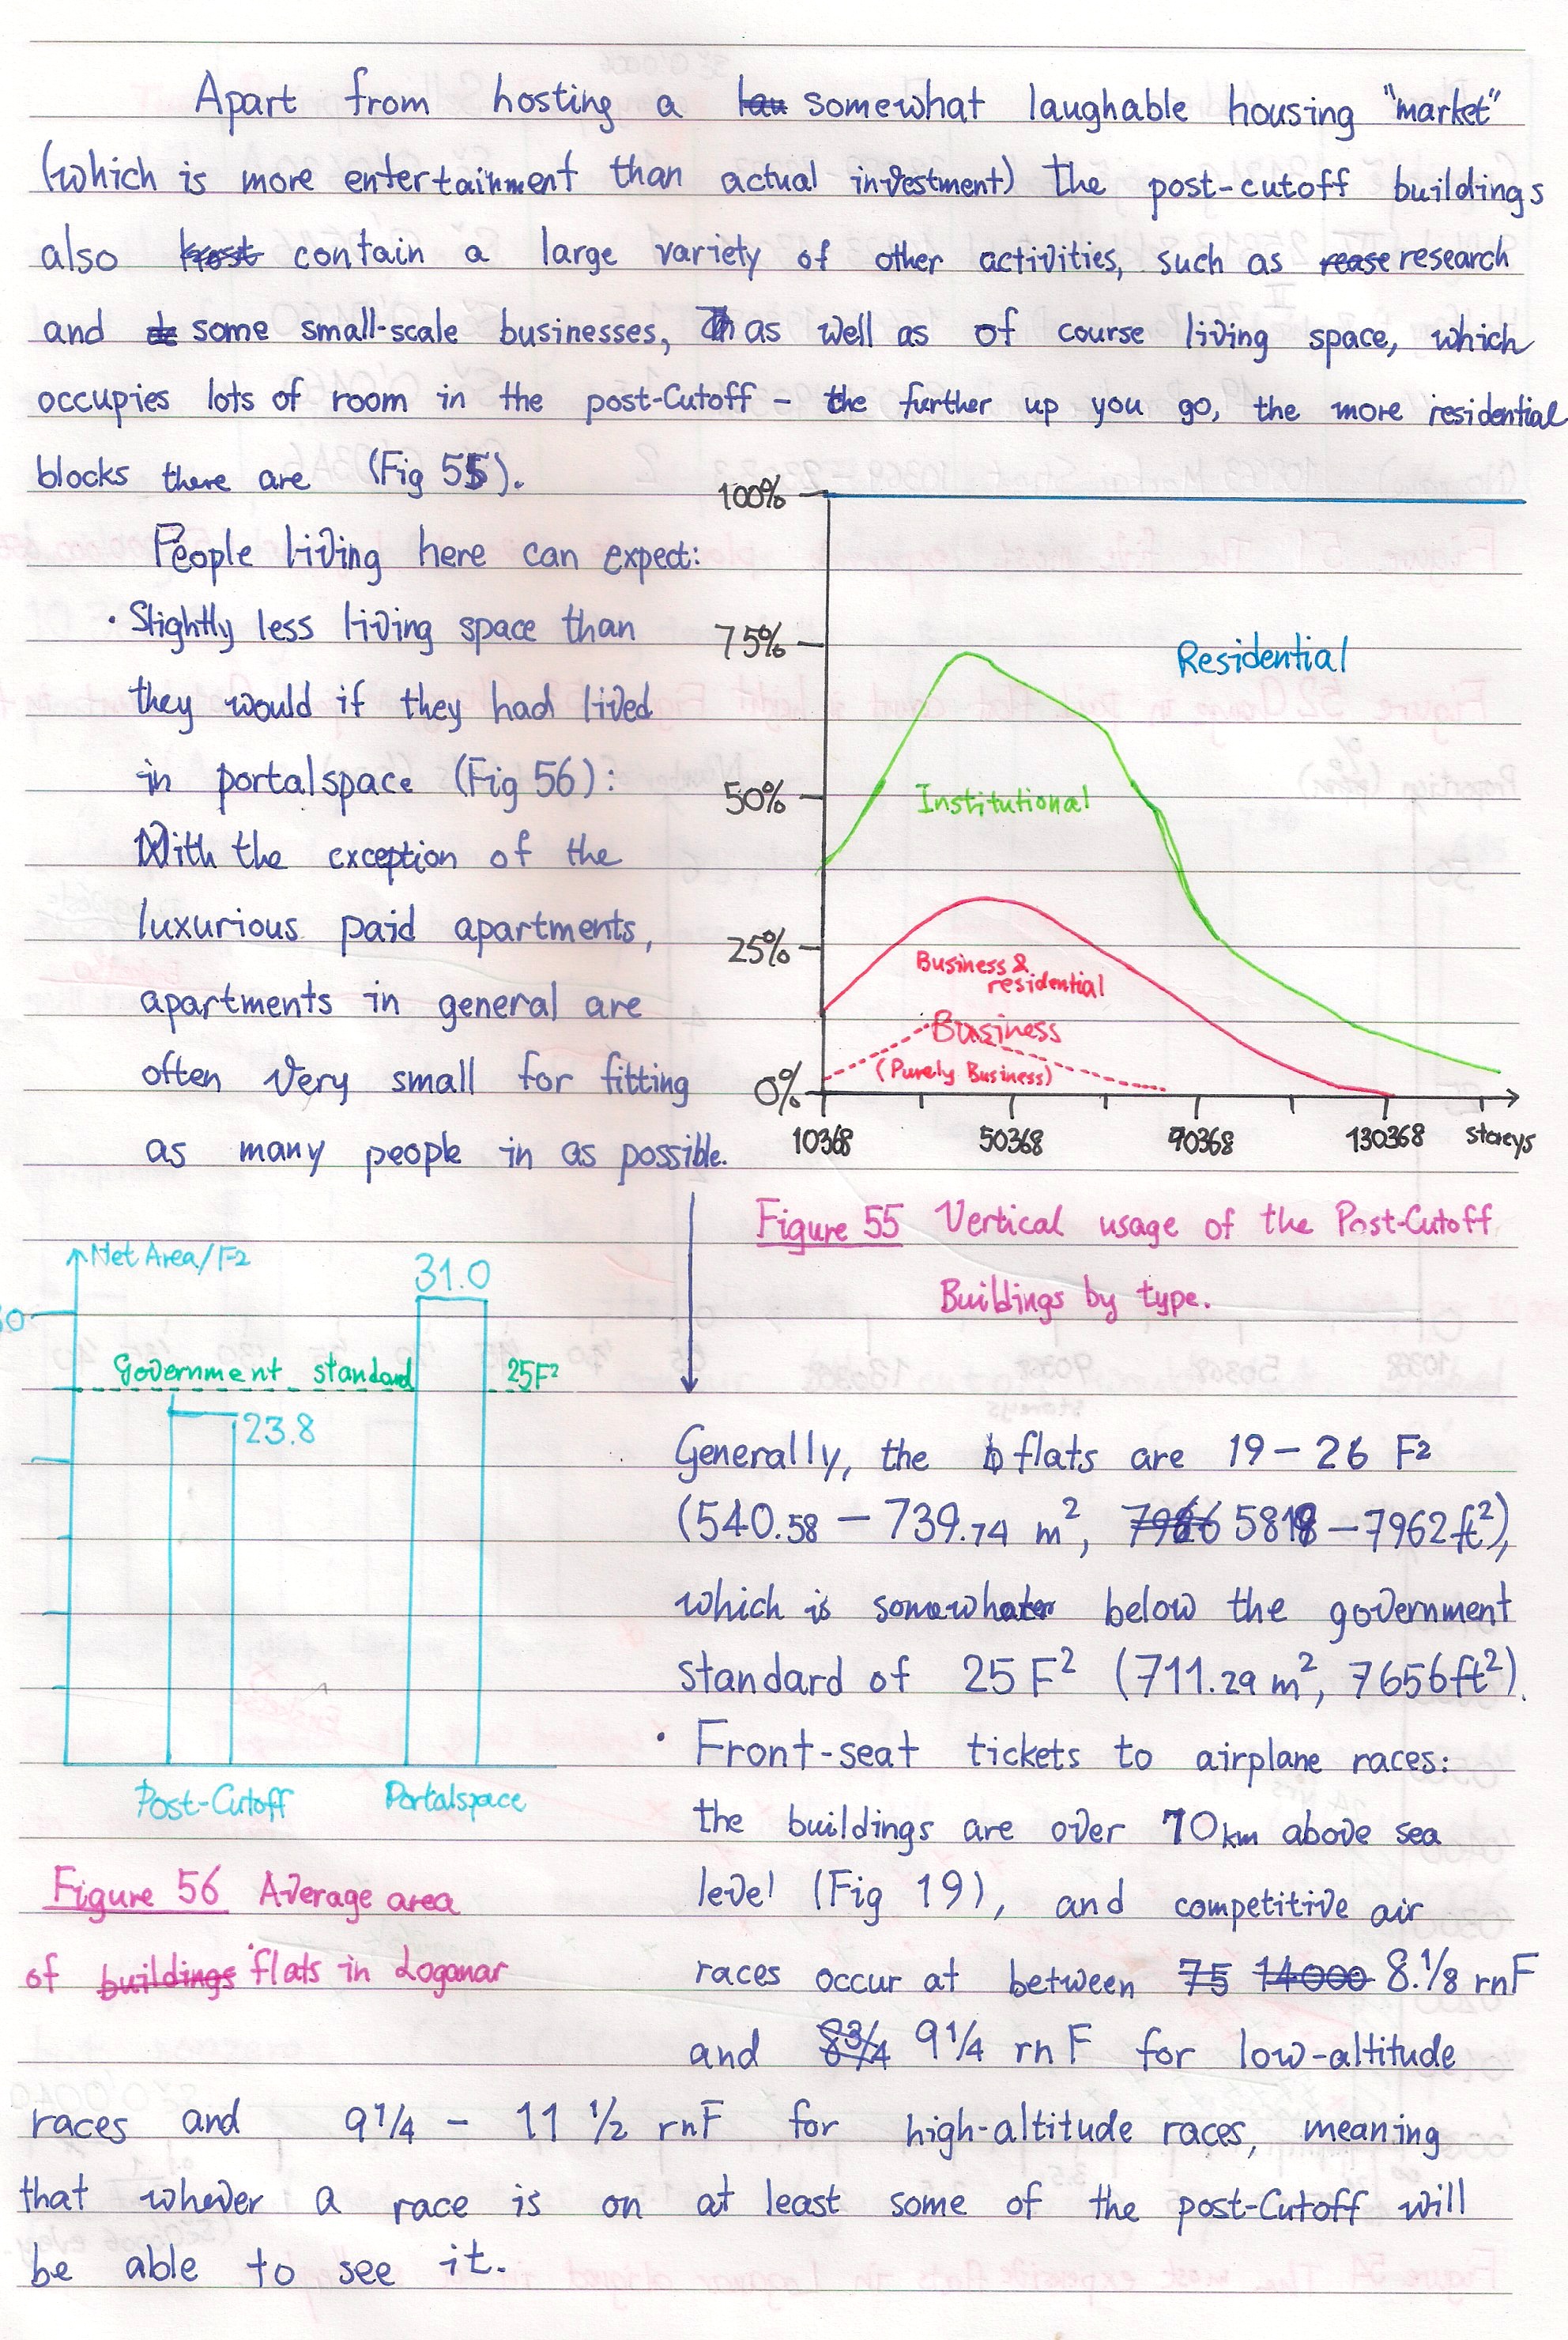 Apart from hosting a lau somewhat laughable housing "market"
(which is more entertainment than actual investment) the post-cutoff buildings
also host contain a large variety of other activities, such as rease research
and some small-scale businesses, as well as of course living space, which
occupies lots of room in the post-Cutoff - the further up you go, the more residential
blocks there are (Fig 55).
People living here can expect:
· Slightly less living space than
they would if they had lived
in portalspace (Fig 56):
With the exception of the
luxurious paid apartments,
apartments in general are
often very small for fitting
as many people in as possible.
100%
75%
50%
25%
0%
Residential
Institutional
Business &
residential
Business
(Purely Business)
10368 50368 90368 130368 storeys
Figure 55 Vertical usage of the Post-Cutoff
Buildings by type.
Net Area/F2
31.0
Government standard 25F²
23.8
Post-Cutoff Portalspace
Figure 56 Average area
of buildings flats in Loganar
Generally, the flats are 19 - 26 F2
(540.58 - 739.74 m², 5818 - 7962 ft²),
which is somewhat below the government
standard of 25 F² (711.29 m², 7656 ft²).
· Front-seat tickets to airplane races:
the buildings are over 70km above sea
level (Fig 19), and competitive air
races occur at between 75 14000 8.1/8 rnF
and 83/4 91/4 rnF for low-altitude
races and 91/4 - 11 1/2 rnF for high-altitude races, meaning
that whever a race is on at least some of the post-Cutoff will
be able to see it.